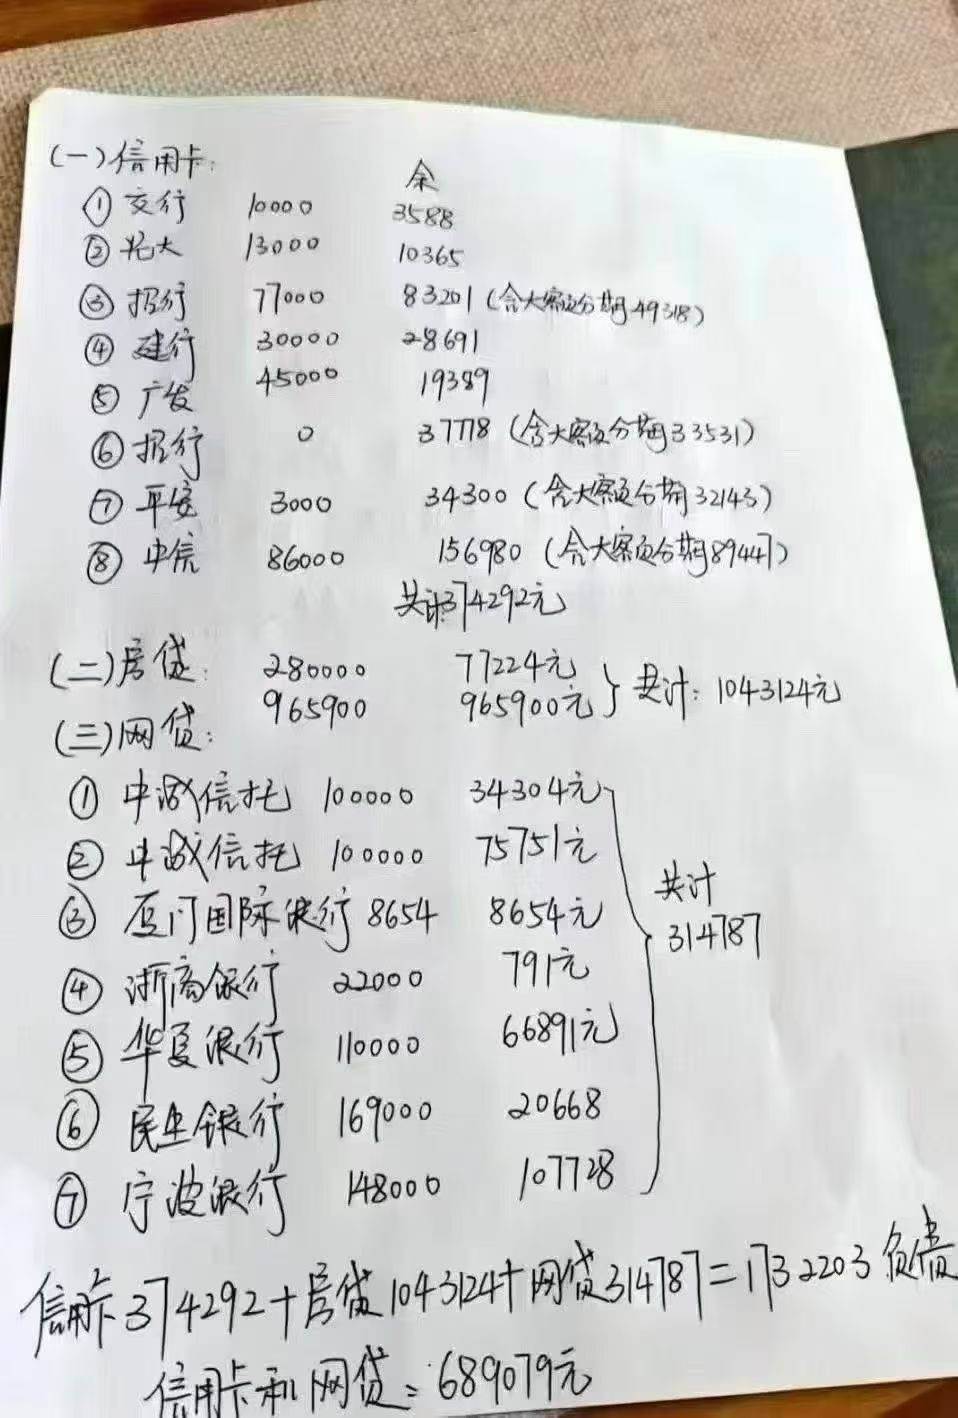 (一)信用卡:
余
① 交行 10000 3588
② 光大 13000 10365
③ 招行 77000 83201(含大额分期49318)
④ 建行 30000 28691
⑤ 广发 45000 19389
⑥ 招行 0 37778(含大额分期33531)
⑦ 平安 3000 34300(含大额分期32143)
⑧ 中信 86000 156980(含大额分期89447)
共计374292元
(二)房贷: 280000 77224元
965900 965900元 } 共计:1043124元
(三)网贷:
① 中诚信托 100000 34304元
② 中诚信托 100000 75751元
③ 厦门国际银行 8654 8654元
④ 浙商银行 22000 791元
⑤ 华夏银行 110000 66891元
⑥ 民生银行 169000 20668
⑦ 宁波银行 148000 107728
共计
314787
信用卡374292+房贷1043124+网贷314787=1732203负债
信用卡和网贷:689079元